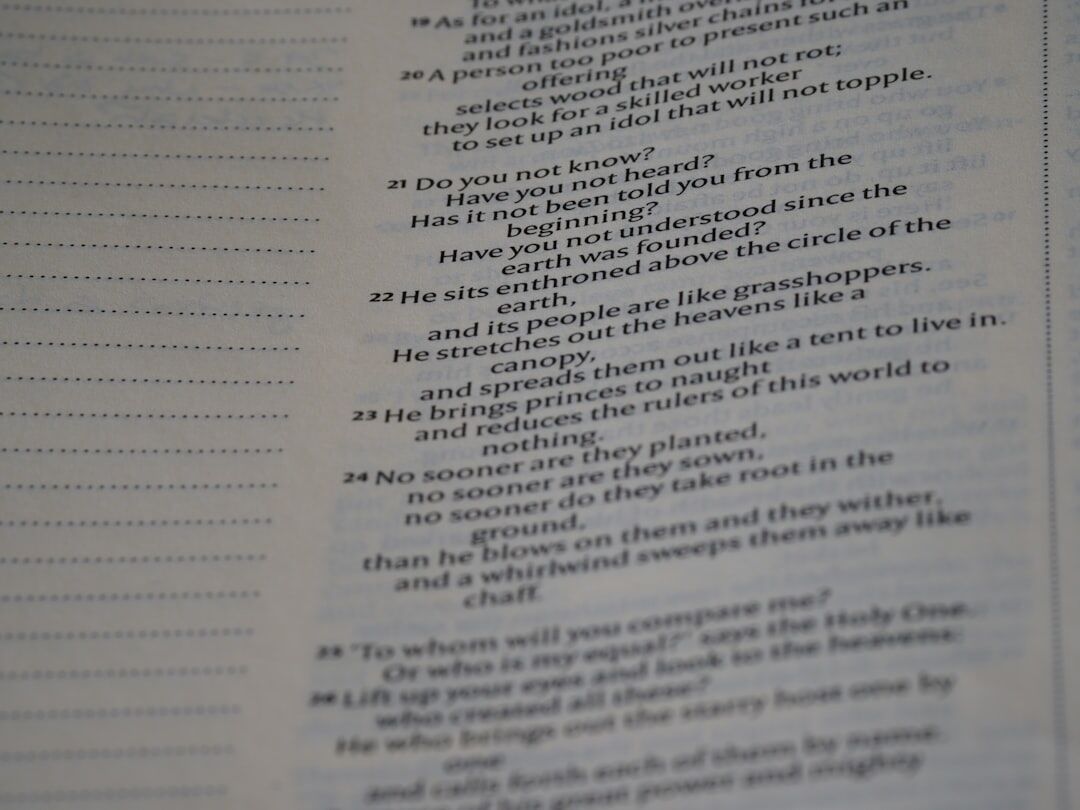 19 As for an idol, a
and a goldsmith
and fashions silver chains for
20 A person too poor to present such an
offering
selects wood that will not rot;
they look for a skilled worker
to set up an idol that will not topple.
21 Do you not know?
Have you not heard?
Has it not been told you from the
beginning?
Have you not understood since the
earth was founded?
22 He sits enthroned above the circle of the
earth,
and its people are like grasshoppers.
He stretches out the heavens like a
canopy,
and spreads them out like a tent to live in.
23 He brings princes to naught
and reduces the rulers of this world to
nothing.
24 No sooner are they planted,
no sooner are they sown,
no sooner do they take root in the
ground,
than he blows on them and they wither,
and a whirlwind sweeps them away like
chaff.
25 "To whom will you compare me?
Or who is my equal?" says the Holy One.
26 Lift up your eyes and look to the heavens:
who created all these?
He who brings out the starry host one by
one
and calls forth each of them by name.
of his great power and mighty